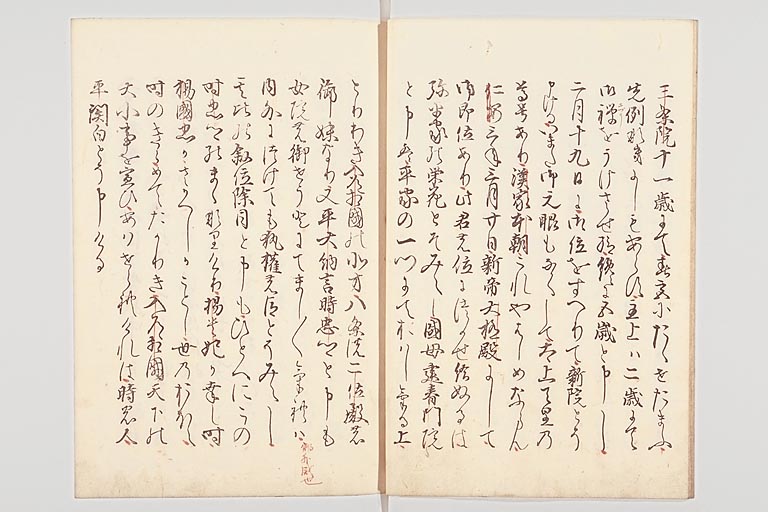 三条院十一歳にて春宮にたゝせたまふ
先例なきにしもあらす主上ハ二歳にて
御禅をうけさせ給ひ纔に五歳と申しし
二月十九日に御位をすへりて新院とそ
申けるいまた御元服もなくして太上天皇の
尊号あり漢家本朝これやはしめならん
仁安三年三月廿日新帝大極殿にして
御即位あり此君の位につかせ給ぬるは
弥平家の栄花とそみえし国母建春門院
と申は平家の一門にておはしける上
とりわき入道相国の北方八条の二位殿の
御妹なり又平大納言時忠卿と申も
女院の御せうとにてまし〱けれハ
内外につけても執権の臣とそみえし
其比の叙位除目と申もひとへにこの
時忠卿のまゝなりけり楊貴妃か幸し時
楊国忠かさかへしかことし世のおほえ
時のきらめてたかりき入道相国天下の
大小事を宣ひあはせられけれは時の人
平関白とそ申ける